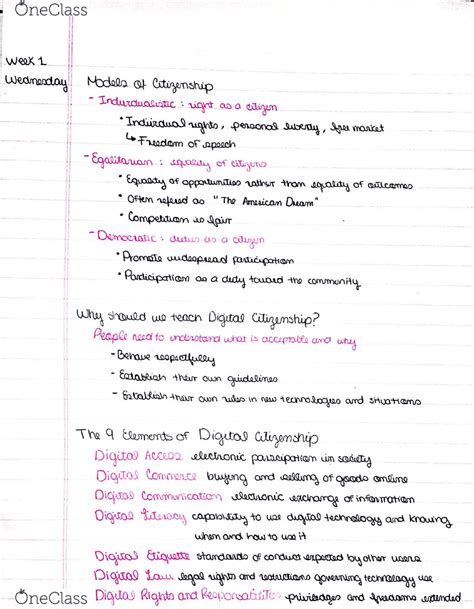 OneClass
Week 1
Wednesday
Models of Citizenship
- Individualistic : right as a citizen
• Individual rights, personal liberty, free market
↳ Freedom of speech
- Egalitarian : equality of citizens
• Equality of opportunities rather than equality of outcomes
• Often refered as "The American Dream"
• Competition is fair
- Democratic : duties as a citizen
• Promote widespread participation
• Participation as a duty toward the community
Why should we teach Digital Citizenship?
People need to understand what is acceptable and why
- Behave respectfully
- Establish their own guidelines
- Establish their own rules in new technologies and situations
The 9 Elements of Digital Citizenship
Digital Access electronic participation in society
Digital Commerce buying and selling of goods online
Digital Communication electronic exchange of information
Digital Literacy capability to use digital technology and knowing
when and how to use it
Digital Etiquette standards of conduct expected by other users
Digital Law legal rights and restrictions governing technology use
Digital Rights and Responsabilities privileges and freedoms extended
OneClass